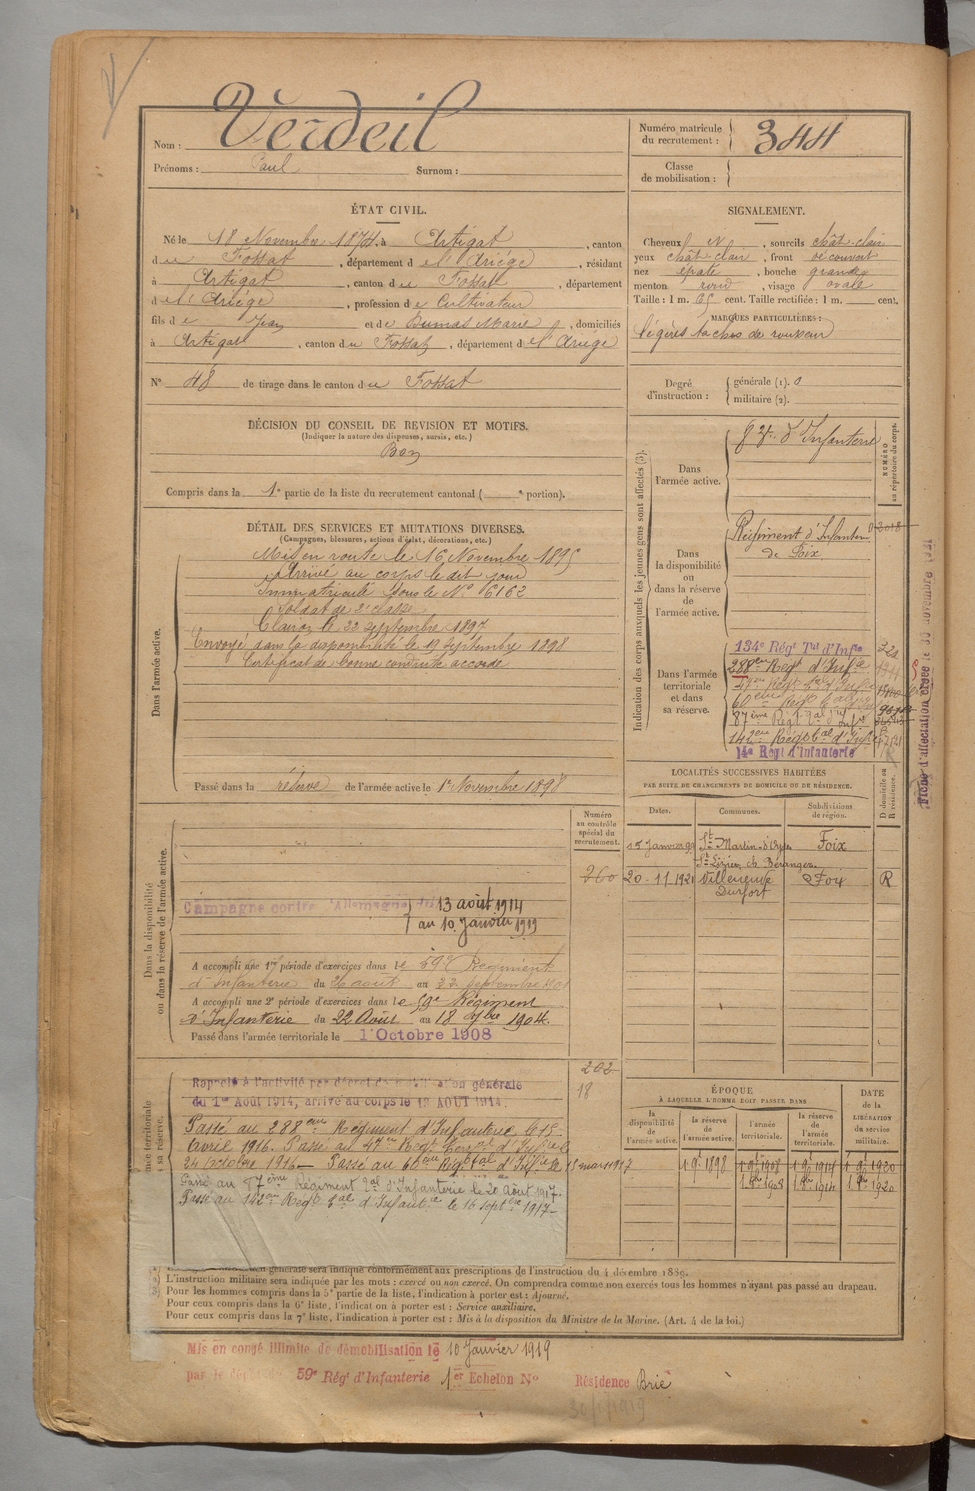 Nom : Verdeil
Prénoms : Paul Surnom :
Numéro matricule du recrutement : 344
Classe de mobilisation :
ÉTAT CIVIL.
Né le 18 Novembre 1874, à Artigat, canton
du Fossat, département de l'Ariège, résidant
à Artigat, canton du Fossat, département
de l'Ariège, profession de Cultivateur
fils de Jean et de Dumas Marie, domiciliés
à Artigat, canton du Fossat, département de l'Ariège
N° 48 de tirage dans le canton du Fossat
SIGNALEMENT.
Cheveux N, sourcils chât-clair
yeux chât-clair, front découvert
nez épaté, bouche grande
menton rond, visage ovale
Taille : 1 m. 65 cent. Taille rectifiée : 1 m. cent.
MARQUES PARTICULIÈRES :
légères taches de rousseur
Degré d'instruction : générale (1). 0
militaire (2).
DÉCISION DU CONSEIL DE REVISION ET MOTIFS.
(Indiquer la nature des dispenses, sursis, etc.)
Bon
Compris dans la 1e partie de la liste du recrutement cantonal ( e portion).
DÉTAIL DES SERVICES ET MUTATIONS DIVERSES.
(Campagnes, blessures, actions d'éclat, décorations, etc.)
Dans l'armée active.
Mis en route le 16 Novembre 1895
Arrivé au corps le dit jour
Immatriculé sous le N° 6162
Soldat de 2e classe
Clairon le 22 Septembre 1897
Envoyé dans la disponibilité le 19 Septembre 1898
Certificat de bonne conduite accordé
Passé dans la réserve de l'armée active le 1er Novembre 1898
Indication des corps auxquels les jeunes gens sont affectés (3).
NUMÉRO au répertoire du corps.
Dans l'armée active.
d'Infanterie
Dans la disponibilité ou dans la réserve de l'armée active.
Régiment d'Infanterie
de Foix
Dans l'armée territoriale et dans sa réserve.
134e Régt Tal d'Infie
288eme Regt d'Infie
47me Regt Tal d'Infie
60eme Regt Tal d'Inf
87ème Régt Tal d'Infie
142eme Régt Tal d'Infie
14e Régt d'Infanterie
Fiche d'affectation créée le 30 novembre
LOCALITÉS SUCCESSIVES HABITÉES
PAR SUITE DE CHANGEMENTS DE DOMICILE OU DE RÉSIDENCE.
Dates. Communes. Subdivisions de région. D domicile ou R résidence.
15 Janvier 99 St Martin-d'Oydes Foix
St Lizier, ch. Béranger.
20-11-1921 Villeneuve Durfort Foix R
Dans la disponibilité ou dans la réserve de l'armée active.
Numéro au contrôle spécial du recrutement.
260
Campagne contre l'Allemagne du 13 août 1914
au 10 Janvier 1919
A accompli une 1re période d'exercices dans le 59e Régiment
d'Infanterie du 26 août au 22 septembre 1901
A accompli une 2e période d'exercices dans le 59e Régiment
d'Infanterie du 22 Août au 18 7bre 1904.
Passé dans l'armée territoriale le 1 Octobre 1908
202
18
Rappelé à l'activité par décret de mobilisation générale
du 1er Août 1914, arrivé au corps le 13 AOUT 1914.
Passé au 288eme Régiment d'Infanterie le 15
Avril 1916. Passé au 47me Regt Terral d'Infie le
24 octobre 1916 — Passé au 60eme Regt Tal d'Infie le 15 mars 1917
Passé au 87ème Régiment Tal d'Infanterie le 20 Août 1917.
Passé au 142eme Regt Tal d'Infantie le 16 septbre 1917 —
ÉPOQUE
À LAQUELLE L'HOMME DOIT PASSER DANS
la disponibilité de l'armée active. la réserve de l'armée active. l'armée territoriale. la réserve de l'armée territoriale. DATE de la LIBÉRATION du service militaire.
1 9bre 1898 1 9bre 1908 1 9bre 1914 1 9bre 1920
1 8bre 1908 1 8bre 1914 1 8bre 1920
générale sera indiqué conformément aux prescriptions de l'instruction du 4 décembre 1889.
L'instruction militaire sera indiquée par les mots : exercé ou non exercé. On comprendra comme non exercés tous les hommes n'ayant pas passé au drapeau.
Pour les hommes compris dans la 5e partie de la liste, l'indication à porter est : Ajourné.
Pour ceux compris dans la 6e liste, l'indication à porter est : Service auxiliaire.
Pour ceux compris dans la 7e liste, l'indication à porter est : Mis à la disposition du Ministre de la Marine. (Art. 4 de la loi.)
Mis en congé illimité de démobilisation le 10 Janvier 1919
par le dépôt du 59e Régt d'Infanterie 1er Echelon N° Résidence Brie
30/1/1919